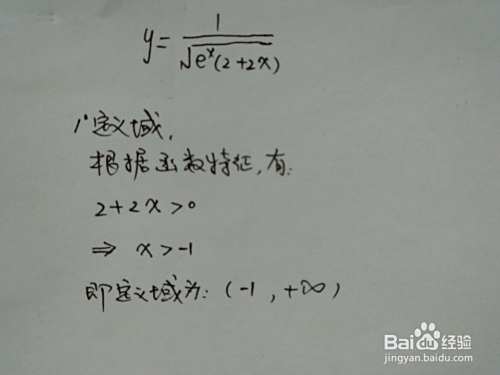 y = 1/√(eˣ(2+2x))
1°定义域,
根据函数特征,有:
2+2x>0
⇒ x>-1
即定义域为: (-1, +∞)
Baidu 经验
jingyan.baidu.com